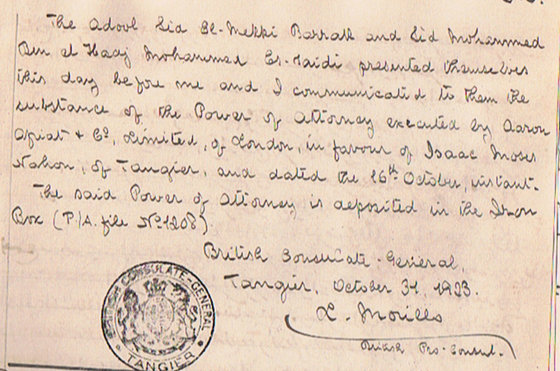 The Adool Sid El-Mekki Barrak and Sid Mohammed
Ben el Hadj Mohammed Es-Saidi presented themselves
this day before me and I communicated to them the
substance of the Power of Attorney executed by Aaron
Afriat & Co, Limited, of London, in favour of Isaac Moses
Nahon, of Tangier, and dated the 16th October, instant.
The said Power of Attorney is deposited in the Iron
Box (P/A. file No 1208)
British Consulate-General,
Tangier, October 31, 1923.
British Pro-Consul.
BRITISH CONSULATE-GENERAL
TANGIER